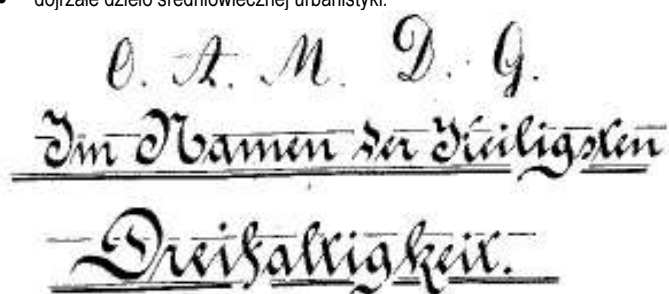 dojrzałe dzieło średniowiecznej urbanistyki.
O. A. M. D. G.
Im Namen der Heiligsten
Dreifaltigkeit.